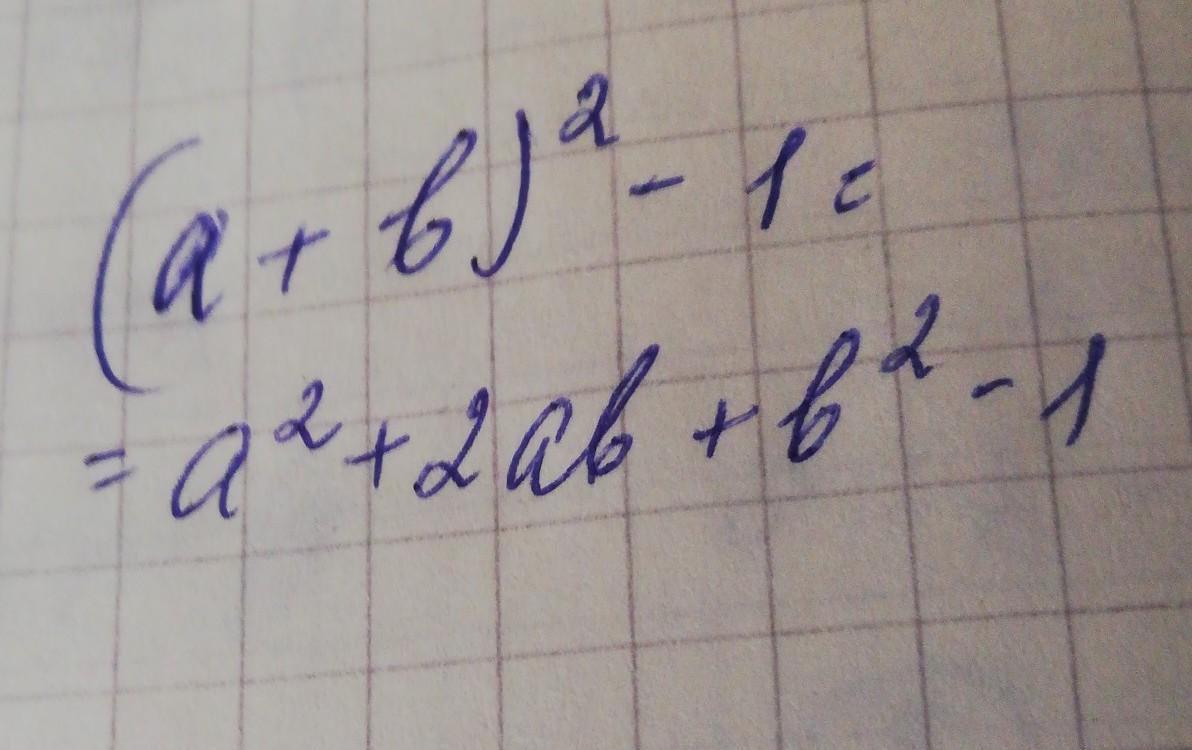 (a + b)² - 1 =
= a² + 2ab + b² - 1